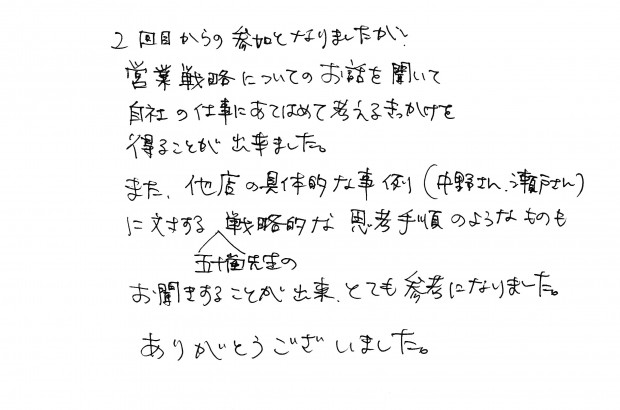 2回目からの参加となりましたが、
営業戦略についてのお話を聞いて
自社の仕事にあてはめて考えるきっかけを
得ることが出来ました。
また、他店の具体的な事例(中野さん、瀬戸さん)
に対する 戦略的な 思考手順のようなものも
五十嵐先生の
お聞きすることが出来、とても参考になりました。
ありがとうございました。